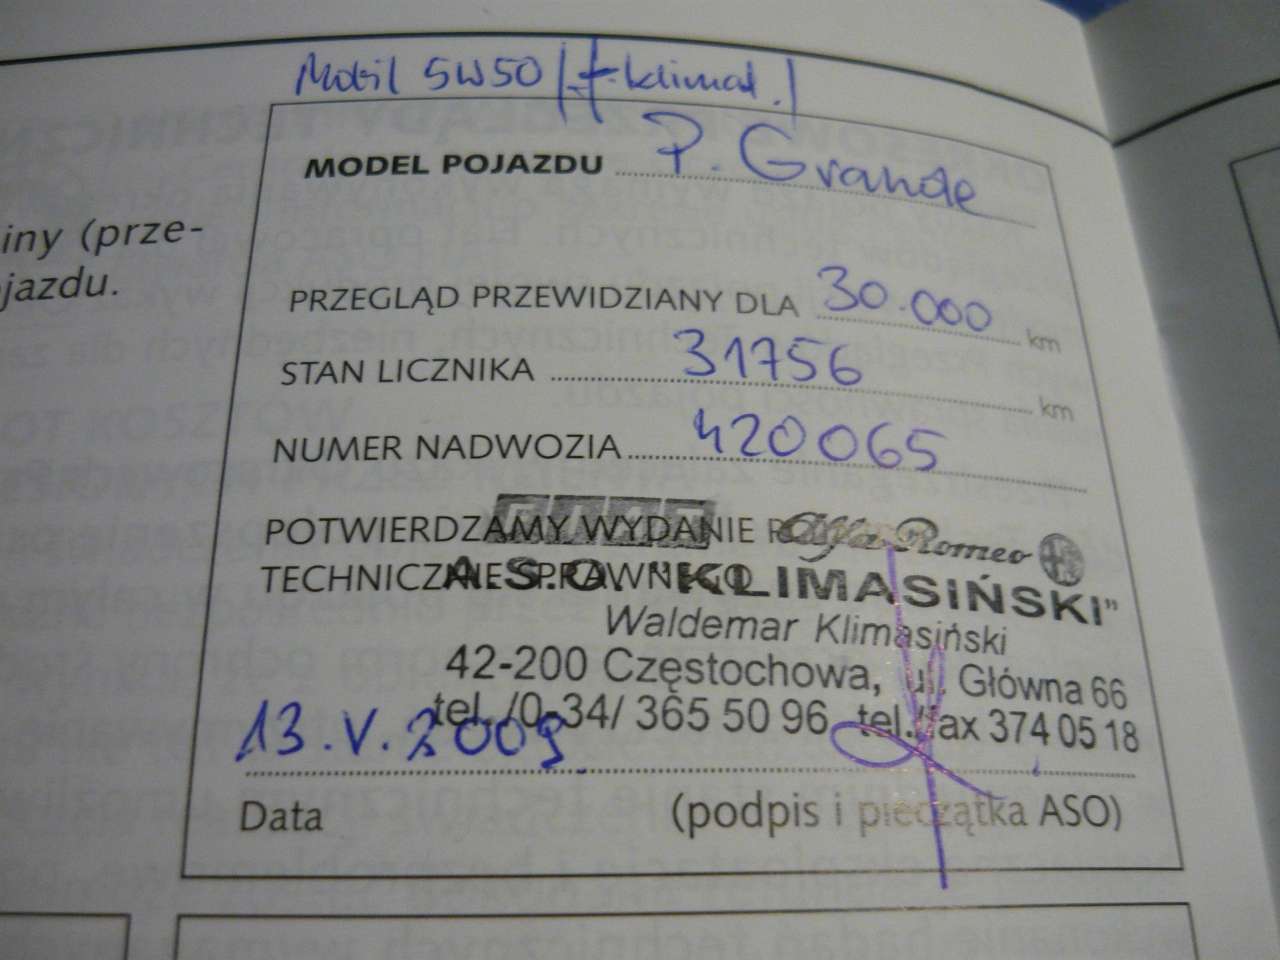 Mobil 5W50 /+ klimat./
MODEL POJAZDU P. Grande
iny (prze-
jazdu.
PRZEGLĄD PRZEWIDZIANY DLA 30.000 km
STAN LICZNIKA 31756 km
NUMER NADWOZIA 420065
POTWIERDZAMY WYDANIE
FIAT Alfa Romeo
TECHNICZNIE SPRAWNEGO
A.S.O. "KLIMASIŃSKI"
Waldemar Klimasiński
42-200 Częstochowa, ul. Główna 66
tel. /0-34/ 365 50 96, tel./fax 374 05 18
13.V.2009
Data (podpis i pieczątka ASO)